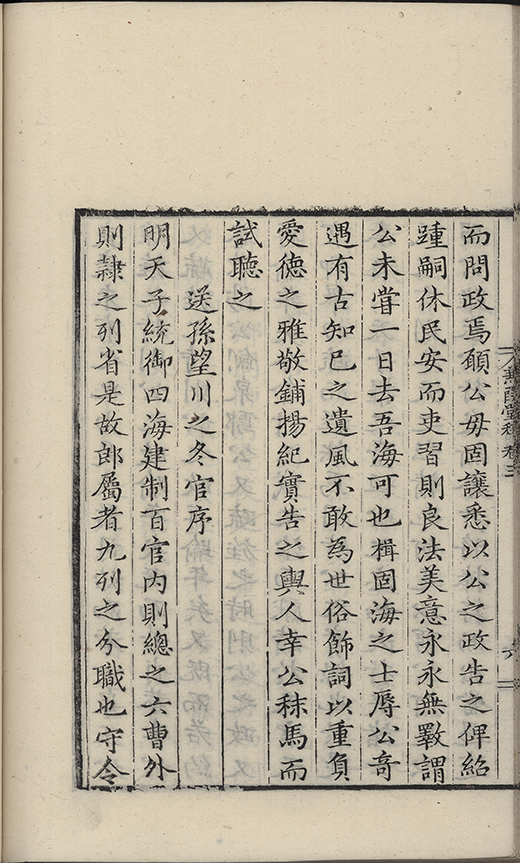 而問政焉願公毋固讓悉以公之政告之俾紹
踵嗣休民安而吏習則良法美意永永無斁謂
公未嘗一日去吾海可也楫固海之士辱公竒
遇有古知巳之遺風不敢為世俗飾詞以重負
愛德之雅敬鋪揚紀實告之輿人幸公秣馬而
試聽之
送孫望川之冬官序
明天子統御四海建制百官內則總之六曹外
則隸之列省是故郎屬者九列之分職也守令